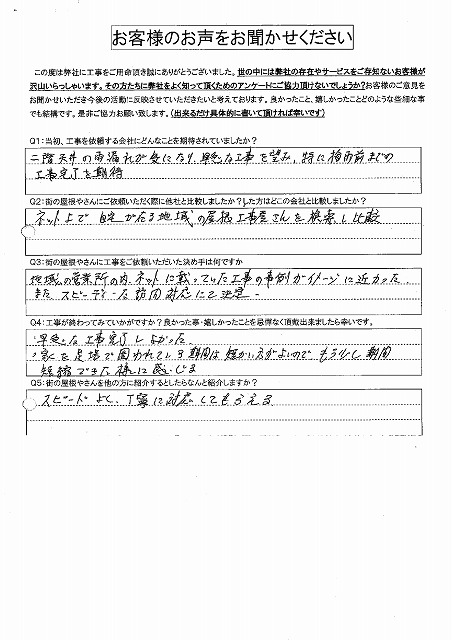 お客様のお声をお聞かせください
この度は弊社に工事をご用命頂き誠にありがとうございました。世の中には弊社の存在やサービスをご存知ないお客様が
沢山いらっしゃいます。その方たちに弊社をよく知って頂くためのアンケートにご協力頂けないでしょうか?お客様のご意見を
お聞かせいただき今後の活動に反映させていただきたいと考えております。良かったこと、嬉しかったことどのような些細な事
でも結構です。是非ご協力お願い致します。(出来るだけ具体的に書いて頂ければ幸いです)
Q1:当初、工事を依頼する会社にどんなことを期待されていましたか?
二階天井の雨漏れが気になり、早急な工事を望み、特に梅雨前までの
工事完了を期待
Q2:街の屋根やさんにご依頼いただく際に他社と比較しましたか?した方はどこの会社と比較しましたか?
ネット上で 自宅がある地域の屋根工事屋さんを検索し比較
Q3:街の屋根やさんに工事をご依頼いただいた決め手は何ですか
地域の営業所の内、ネットに載っていた工事の事例がイメージに近かった
また、スピーディーな訪問対応にて決定。
Q4:工事が終わってみていかがですか?良かった事・嬉しかったことを忌憚なく頂戴出来ましたら幸いです。
・早急な工事完了しよかった。
・家を足場で囲われている期間は短かい方がよいので、もう少し期間
短縮できた様に感じる
Q5:街の屋根やさんを他の方に紹介するとしたらなんと紹介しますか?
スピードよく、丁寧に対応してもらえる